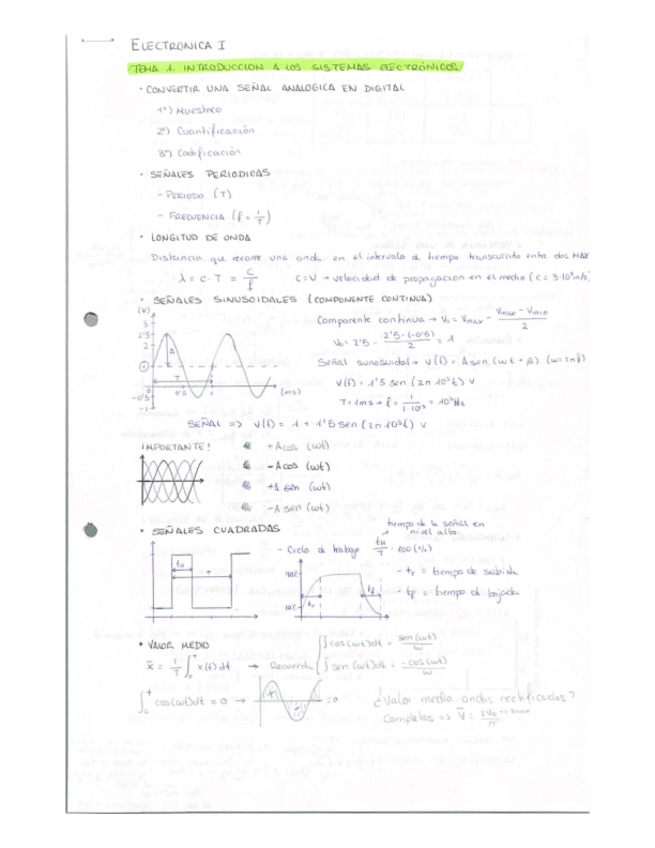 ELECTRONICA I
TEMA 1. INTRODUCCION A LOS SISTEMAS ELECTRÓNICOS
• CONVERTIR UNA SEÑAL ANALOGICA EN DIGITAL
1º) Muestreo
2º) Cuantificación
3º) Codificación
• SEÑALES PERIODICAS
- PERIODO (T)
- FRECUENCIA (f = 1/T)
• LONGITUD DE ONDA
Distancia que recorre una onda en el intervalo de tiempo transcurrido entre dos MAX
λ = c · T = c/f   c = v → velocidad de propagacion en el medio (c = 3·10⁸m/s)
• SEÑALES SINUSOIDALES (COMPONENTE CONTINUA)
(V)
3
2'5
2
1
0
-0'5
-1
A
T
0'5
1
(ms)
Componente continua → V₀ = Vmax - (Vmax - Vmin)/2
V₀ = 2'5 - (2'5 - (-0'5))/2 = 1
Señal sunosuidal → v(t) = A sen (wt + β) (w = 2πf)
V(t) = 1'5 sen (2π 10³t) v
T = 1ms → f = 1/(1·10⁻³) = 10³Hz
SEÑAL => v(t) = 1 + 1'5 sen (2π 10³t) v
IMPORTANTE!
+A cos (wt)
-A cos (wt)
+A sen (wt)
-A sen (wt)
• SEÑALES CUADRADAS
tH
T
tiempo de la señal en
nivel alto.
- Ciclo de trabajo tH/T · 100 (%)
90%
10%
tr
tf
- tr = tiempo de subida
- tf = tiempo de bajada
• VALOR MEDIO
x̄ = 1/T ∫₀ᵀ x(t) dt → Recuerda
∫cos(wt)dt = sen(wt)/w
∫sen(wt)dt = -cos(wt)/w
∫₀ᵀ cos(wt)dt = 0 → + - = 0
¿Valor medio ondas rectificadas?
Completas => V̄ = 2Vp/π